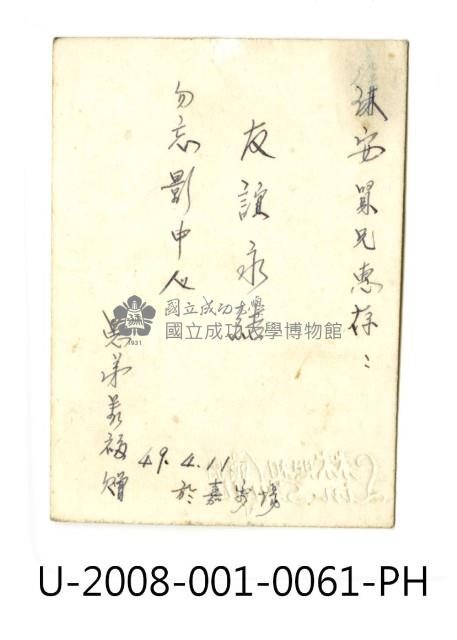 安兄惠存：
友誼永
勿忘影中人
弟義福贈
49.4.11
於嘉安場
國立成功大學
國立成功大學博物館
1931
U-2008-001-0061-PH